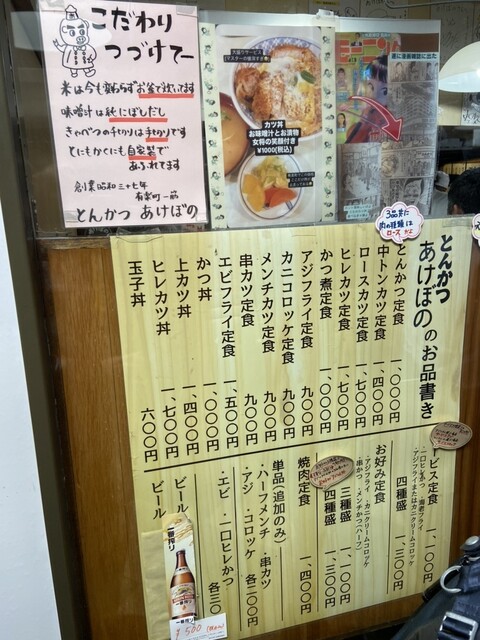 こだわり
つづけてー
米は今も変わらずお釜で炊いてます
味噌汁は純にぼしだし
きゃべつの千切りは手切りです
とにもかくにも自家製で
あふれてます
創業昭和三十七年
有楽町一筋
とんかつ あけぼの
大盛りサービス
(マスターの機嫌すぎ)
カツ丼
お味噌汁とお漬物
女将の笑顔付き
¥1000(税込)
モーニング
遂に漫画雑誌に出た
3品共に
肉の種類は
ロース
とんかつ
あけぼののお品書き
とんかつ定食 一、〇〇〇円
中トンカツ定食 一、四〇〇円
ロースカツ定食 一、七〇〇円
ヒレカツ定食 一、七〇〇円
かつ煮定食 一、〇〇〇円
アジフライ定食 九〇〇円
カニコロッケ定食 九〇〇円
メンチカツ定食 九〇〇円
串カツ定食 九〇〇円
エビフライ定食 一、五〇〇円
かつ丼 一、〇〇〇円
上カツ丼 一、四〇〇円
ヒレカツ丼 一、七〇〇円
玉子丼 六〇〇円
ービス定食 一、一〇〇円
・一口ヒレかつ・海老フライ
・アジフライまたはカニクリームコロッケ
四種盛 一、三〇〇円
お好み定食
・アジフライ・カニクリームコロッケ
・串かつ・メンチかつ(ハーフ)
三種盛 一、一〇〇円
四種盛 一、三〇〇円
焼肉定食 一、四〇〇円
単品(追加のみ)
・ハーフメンチ・串カツ
・アジ・コロッケ 各二〇〇円
・エビ・一口ヒレかつ 各三〇
ビール
ビール
一番搾り
¥500